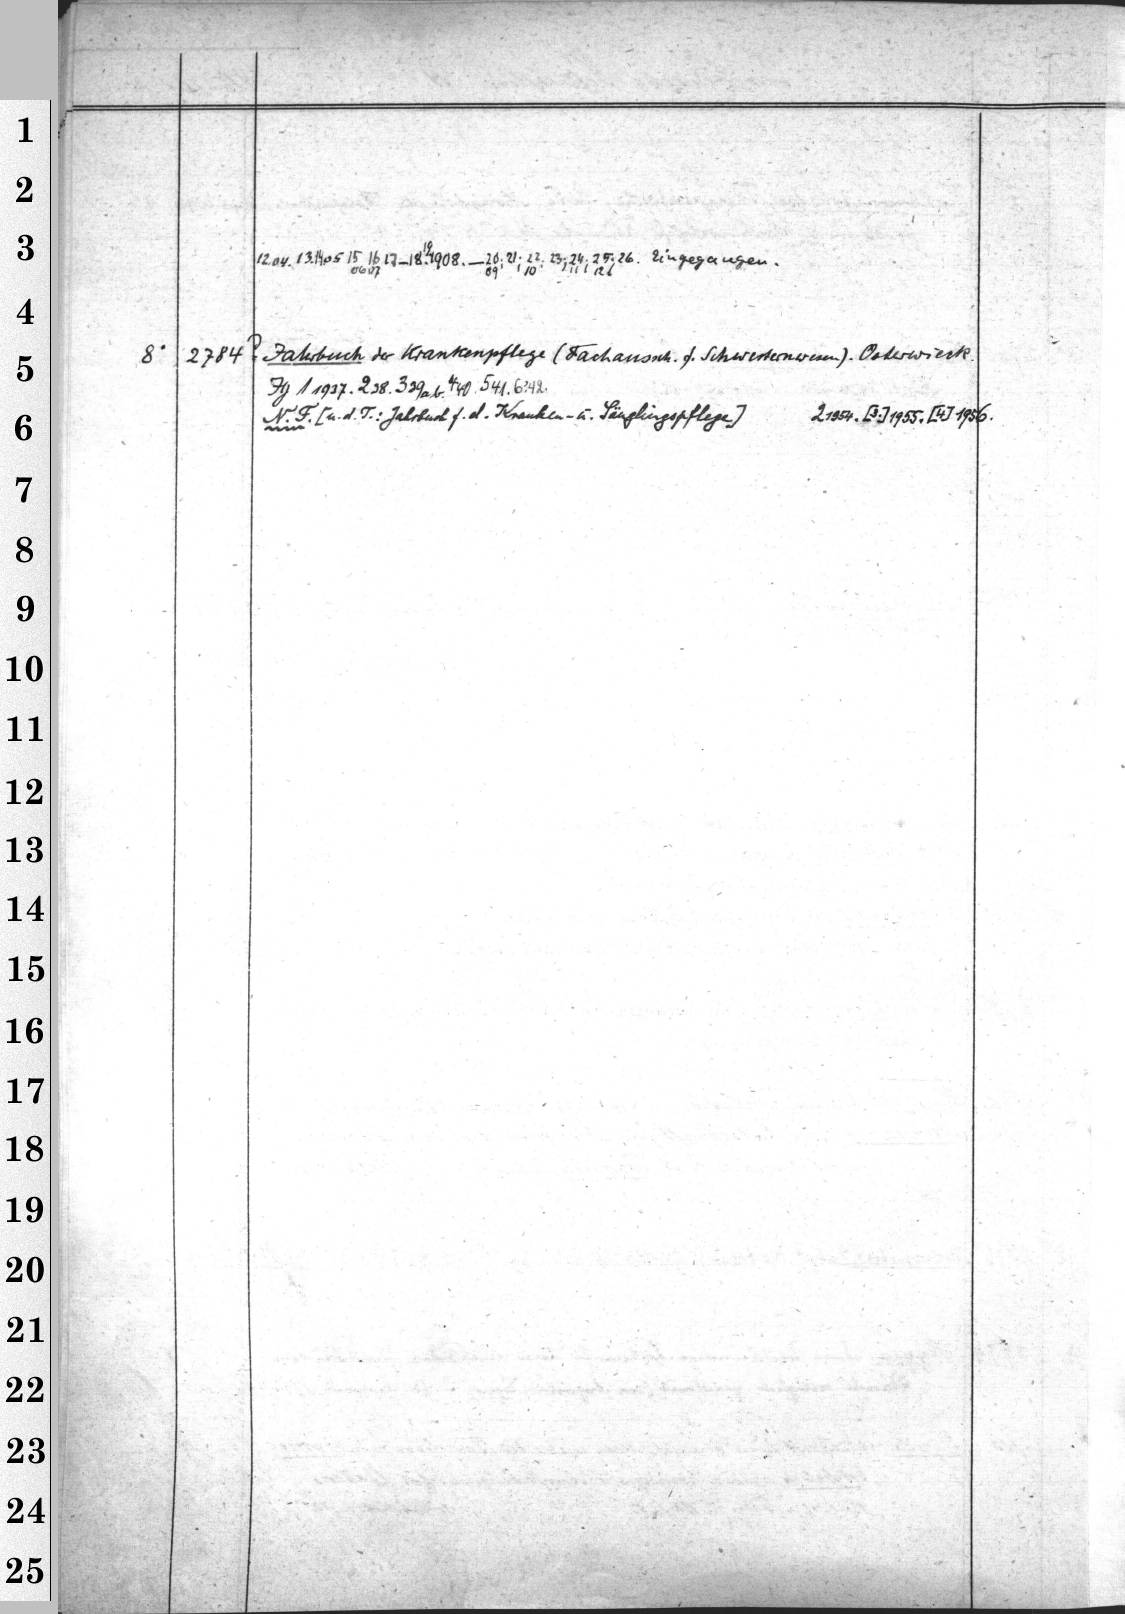 1
2
3
12.04. 13.14 05 15 06 16 07 17–18. 19 1908. — 20, 09 21, 22, 10 23, 24, 11 25, 12 26. Eingegangen.
4
5
8° 2784 Jahrbuch der Krankenpflege (Fachaussch. f. Schwesternwesen). Osterwieck.
Jg 1 1937. 2 38. 3 39 a.b. 4 40. 5 41. 6 42.
6
N. F. [u. d. T.: Jahrbuch f. d. Kranken- u. Säuglingspflege] 2 1954. [3.] 1955. [4] 1956.
7
8
9
10
11
12
13
14
15
16
17
18
19
20
21
22
23
24
25